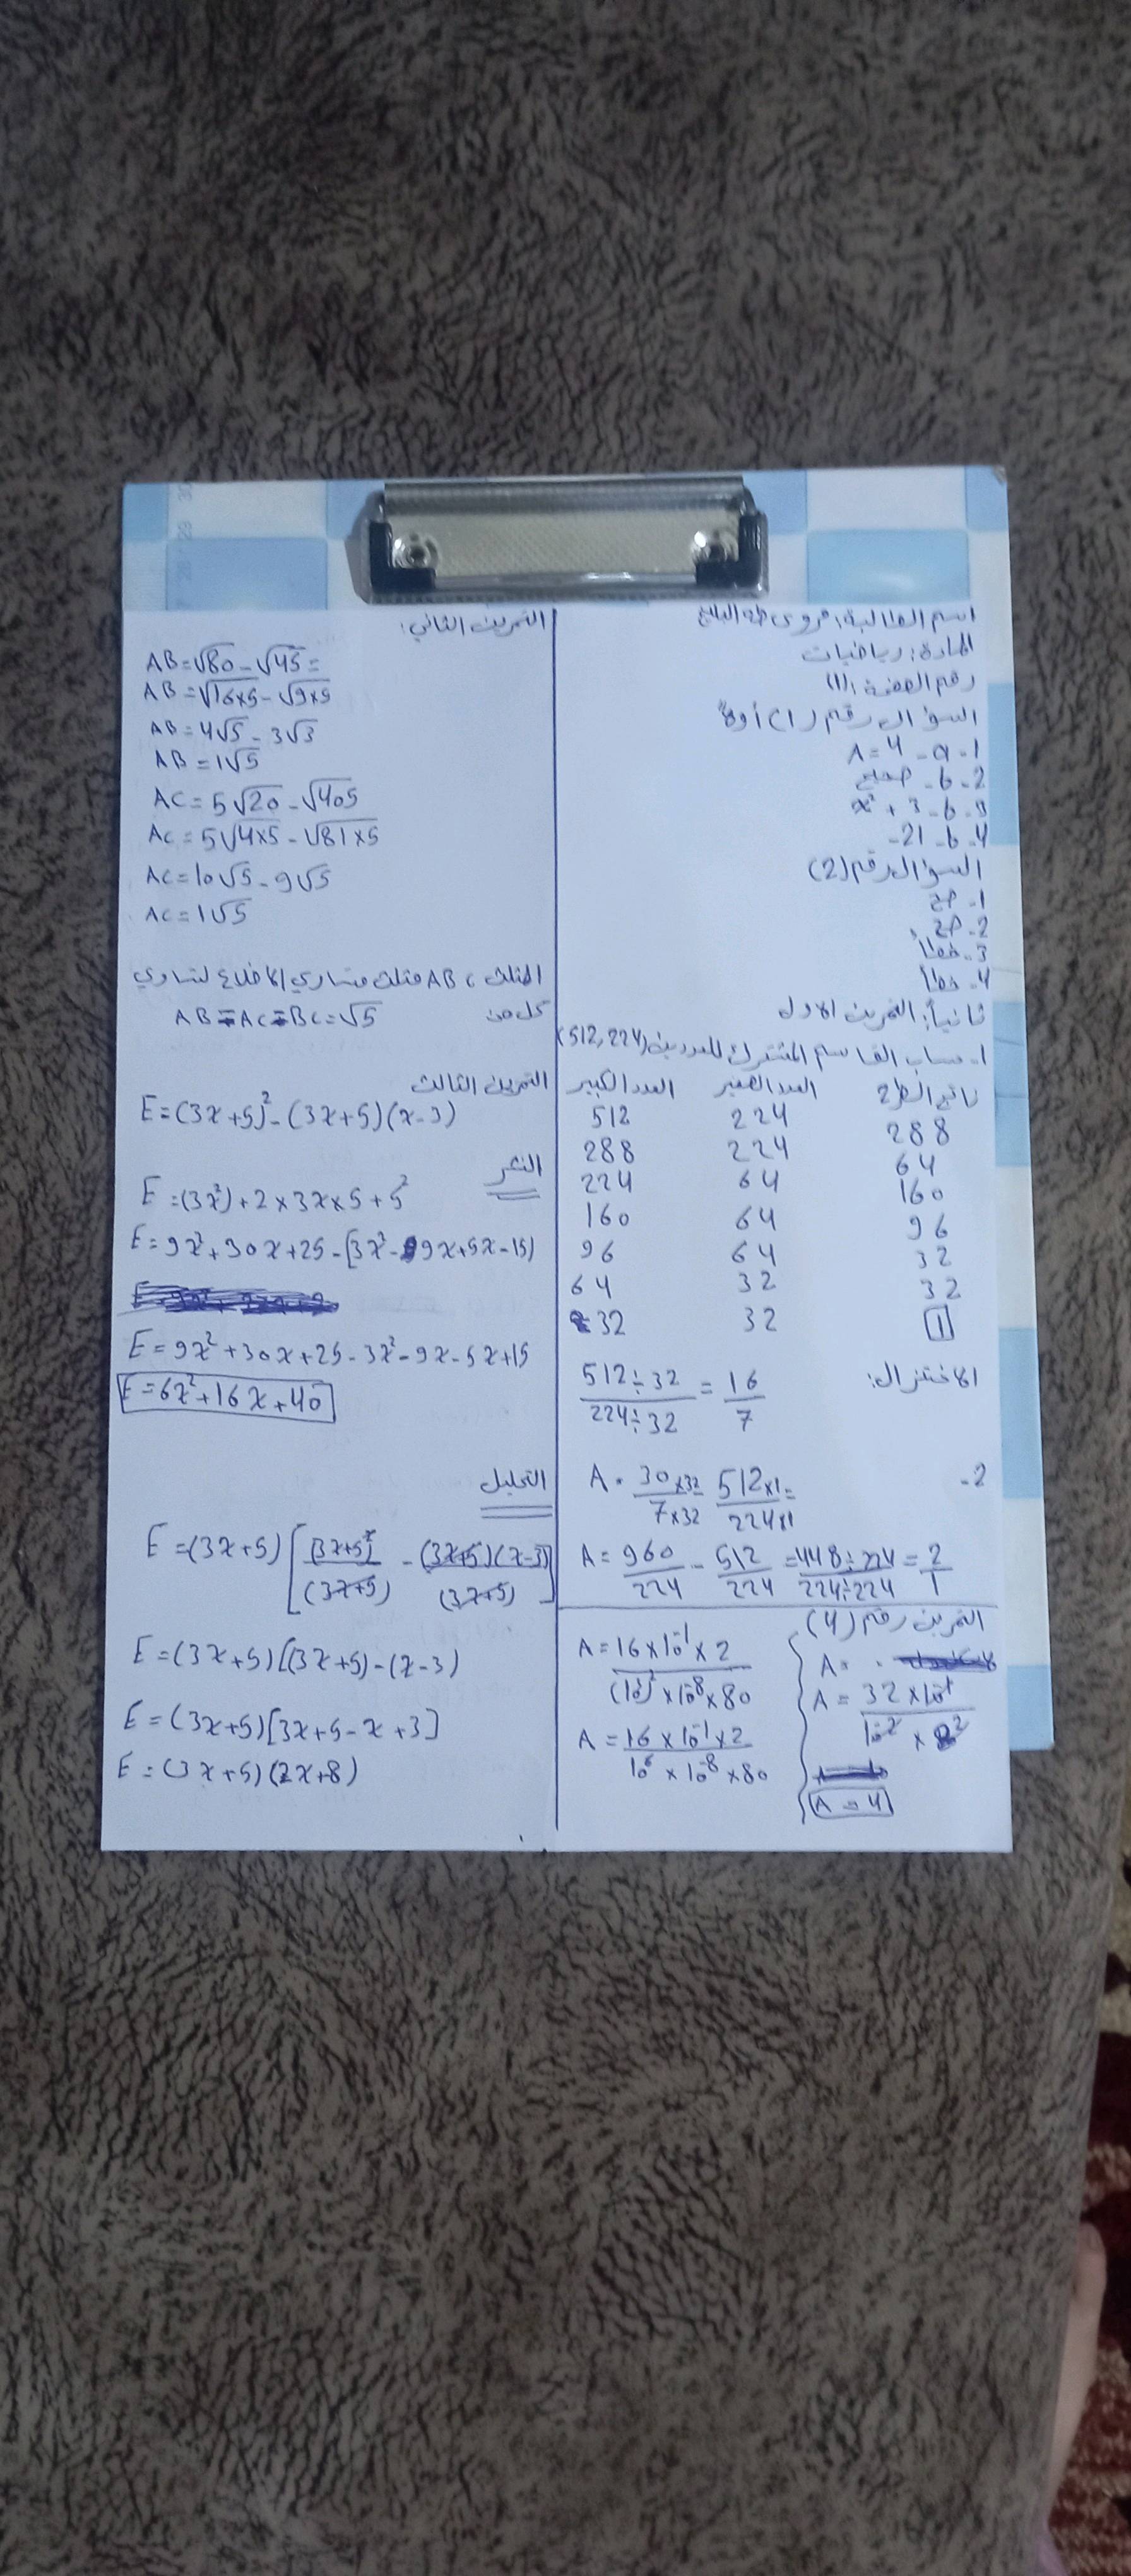 اسم الطالبة: مروى طه
المادة: رياضيات
رقم الصفحة: (1)
السؤال رقم (1) أولاً
1 - a - A = 4
2 - b - صحيح
3 - b - x² + 3
4 - b - 21-
السؤال رقم (2)
1 - صح
2 - صح
3 - خطأ
4 - خطأ
ثانياً: التمرين الاول
1- حساب القاسم المشترك للعددين (512, 224)
العدد الكبير العدد الصغير ناتج الطرح
512 224 288
288 224 64
224 64 160
160 64 96
96 64 32
64 32 32
32 32 1
الاختزال:
512÷32 / 224÷32 = 16/7
2-
A = 30×32 / 7×32 512×1 / 224×1 =
A = 960/224 - 512/224 = 448÷224 / 224÷224 = 2/1
التمرين رقم (4)
A = 16×10⁻¹×2 / (10³)²×10⁻⁸×80
A = 16×10⁻¹×2 / 10⁶×10⁻⁸×80
A =
A = 32×10⁻¹ / 10⁻²×
A = 4
التمرين الثاني:
AB = √80 - √45 =
AB = √16×5 - √9×5
AB = 4√5 - 3√3
AB = 1√5
AC = 5√20 - √405
AC = 5√4×5 - √81×5
AC = 10√5 - 9√5
AC = 1√5
المثلث ABC مثلث متساوي الاضلاع لتساوي
كل من AB = AC = BC = √5
التمرين الثالث
E = (3x+5)² - (3x+5)(x-3)
النشر
E = (3x²) + 2×3x×5 + 5²
E = 9x² + 30x + 25 - [3x² - 9x + 5x - 15)
E = 9x² + 30x + 25 - 3x² - 9x - 5x + 15
E = 6x² + 16x + 40
التحليل
E = (3x+5) [(3x+5)² / (3x+5) - (3x+5)(x-3) / (3x+5)]
E = (3x+5) [(3x+5) - (x-3)
E = (3x+5) [3x+5 - x + 3]
E = (3x+5) (2x+8)